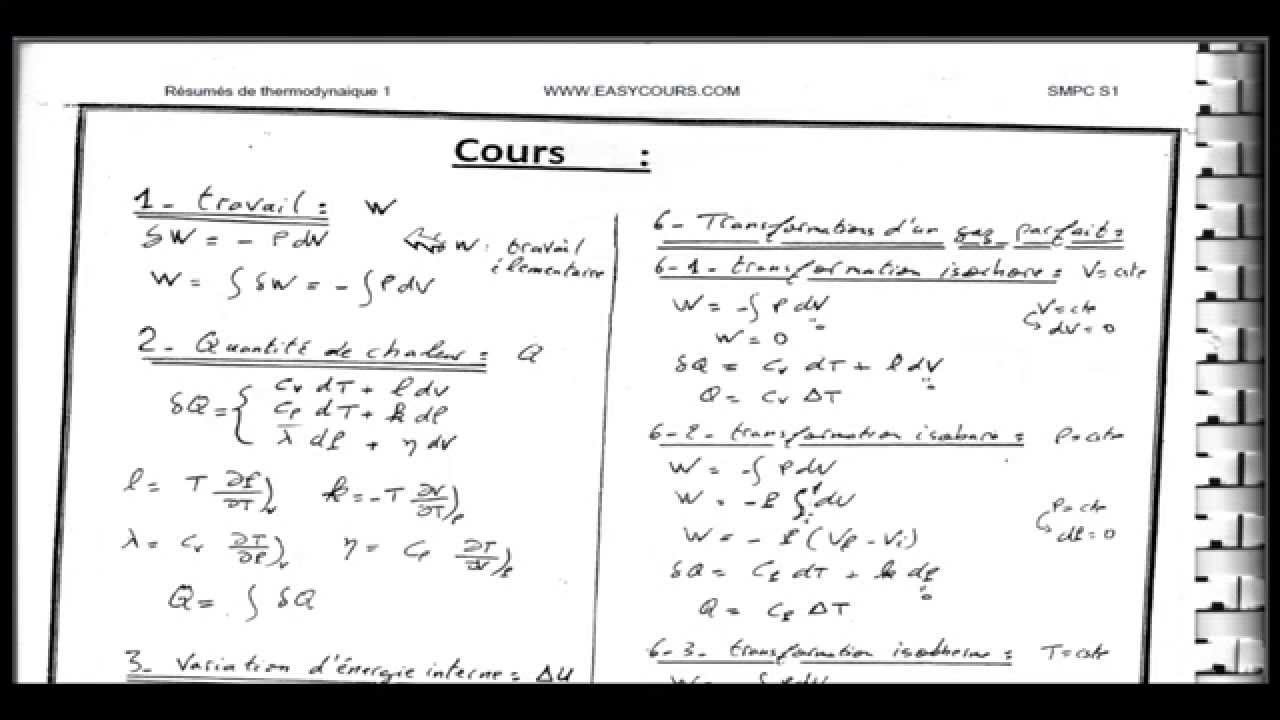 Résumés de thermodynaique 1 WWW.EASYCOURS.COM SMPC S1
Cours :
1 - travail : W
δW = - P dV
W : travail
élementaire
W = ∫ δW = - ∫ P dV
2 - Quantité de chaleur : Q
δQ = { Cv dT + l dv
Cp dT + k dP
λ dP + η dV
l = T ∂P/∂T)v k = -T ∂V/∂T)P
λ = Cv ∂T/∂P)v η = CP ∂T/∂V)P
Q = ∫ δQ
3 - Variation d'énergie interne : ΔU
6 - Transformations d'un gaz parfait :
6-1- transformation isochore : V = cte
W = -∫ P dV
W = 0
V = cte
dV = 0
δQ = Cv dT + l dV
0
Q = Cv ΔT
6-2- transformation isobare : P = cte
W = -∫ P dV
W = -P ∫ dV
P = cte
dP = 0
W = - P (Vf - Vi)
δQ = CP dT + k dP
0
Q = CP ΔT
6-3- transformation isotherme : T = cte
W = ∫ P dV